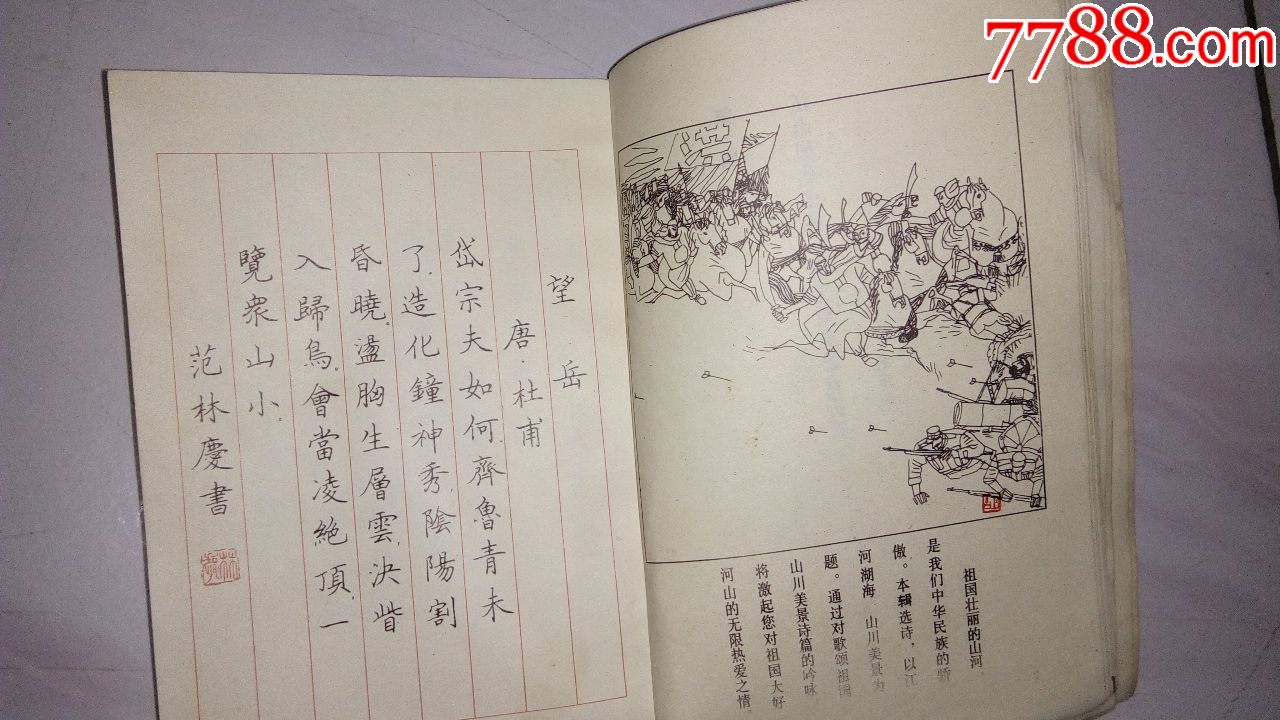 7788.com
洪
祖国壮丽的山河，
是我们中华民族的骄
傲。本辑选诗，以江
河湖海 山川美景为
题。通过对歌颂祖国
山川美景诗篇的吟咏
将激起您对祖国大好
河山的无限热爱之情。
望岳
唐·杜甫
岱宗夫如何.齊魯青未
了.造化鐘神秀.陰陽割
昏曉.盪胸生層雲.決眥
入歸鳥.會當凌絶頂.一
覽衆山小.
范林慶書